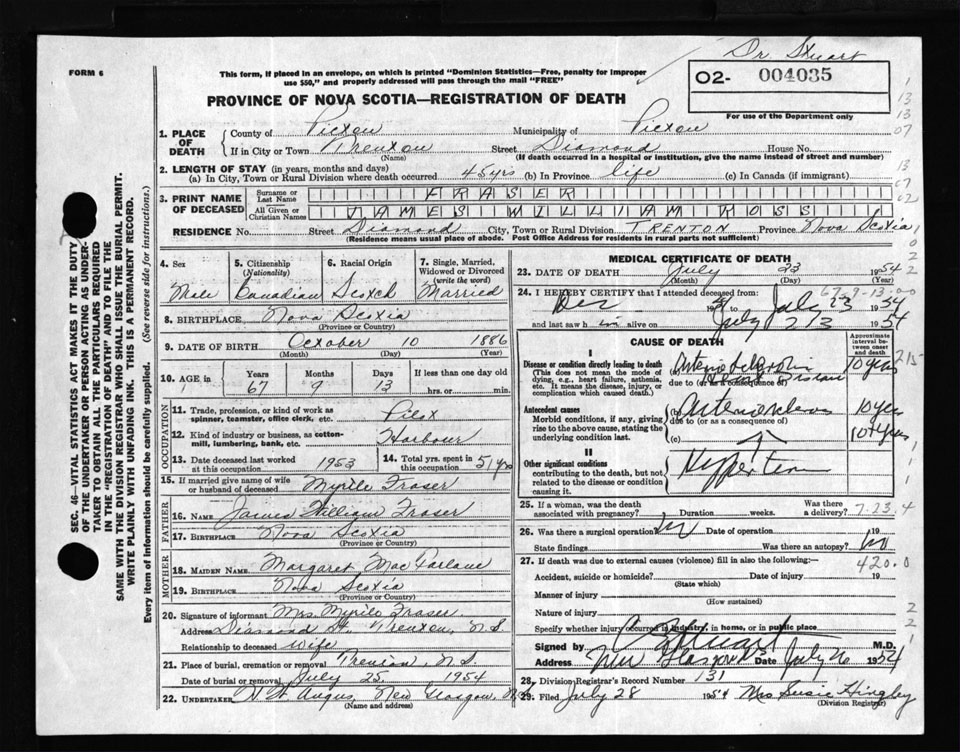 Dr Stuart
FORM 6
This form, if placed in an envelope, on which is printed "Dominion Statistics—Free, penalty for improper
use $50," and properly addressed will pass through the mail "FREE"
O2- 004035
For use of the Department only
PROVINCE OF NOVA SCOTIA—REGISTRATION OF DEATH
1. PLACE OF DEATH
County of Pictou Municipality of Pictou
If in City or Town Trenton Street Diamond House No.
(Name) (If death occurred in a hospital or institution, give the name instead of street and number)
2. LENGTH OF STAY (in years, months and days)
(a) In City, Town or Rural Division where death occurred 45 yrs (b) In Province life (c) In Canada (if immigrant)
3. PRINT NAME OF DECEASED
Surname or Last Name FRASER
All Given or Christian Names JAMES WILLIAM ROSS
RESIDENCE No. Street Diamond City, Town or Rural Division TRENTON Province Nova Scotia
(Residence means usual place of abode. Post Office Address for residents in rural parts not sufficient)
4. Sex Male
5. Citizenship (Nationality) Canadian
6. Racial Origin Scotch
7. Single, Married, Widowed or Divorced (write the word) Married
8. BIRTHPLACE Nova Scotia
(Province or Country)
9. DATE OF BIRTH October 10 1886
(Month) (Day) (Year)
10. AGE in Years 67 Months 9 Days 13 If less than one day old
hrs. or min.
OCCUPATION
11. Trade, profession, or kind of work as spinner, teamster, office clerk, etc. Pilot
12. Kind of industry or business, as cotton-mill, lumbering, bank, etc. Harbour
13. Date deceased last worked at this occupation 1953
14. Total yrs. spent in this occupation 51 yrs
15. If married give name of wife or husband of deceased Myrtle Fraser
FATHER
16. NAME James William Fraser
17. BIRTHPLACE Nova Scotia
(Province or Country)
MOTHER
18. MAIDEN NAME Margaret MacFarlane
19. BIRTHPLACE Nova Scotia
(Province or Country)
20. Signature of informant Mrs. Myrtle Fraser
Address Diamond St. Trenton, N.S.
Relationship to deceased wife
21. Place of burial, cremation or removal Trenton, N.S.
Date of burial or removal July 25 1954
22. UNDERTAKER Angus, New Glasgow
(Name and address)
MEDICAL CERTIFICATE OF DEATH
23. DATE OF DEATH July 23 1954
(Month) (Day) (Year)
67-9-13-00
24. I HEREBY CERTIFY that I attended deceased from:
Dec July 23 1954
and last saw him alive on July 23 1954
CAUSE OF DEATH
Approximate interval between onset and death
I
Disease or condition directly leading to death
(This does not mean the mode of dying, e.g., heart failure, asthenia, etc. It means the disease, injury, or complication which caused death.)
10 years
due to (or as a consequence of)
Antecedent causes
Morbid conditions, if any, giving rise to the above cause, stating the underlying condition last.
(b) 10 yrs
due to (or as a consequence of)
(c) 10 years
II
Other significant conditions
contributing to the death, but not related to the disease or condition causing it.
25. If a woman, was the death associated with pregnancy? Duration weeks. Was there a delivery?
7-23-4
26. Was there a surgical operation? Date of operation 19
State findings Was there an autopsy?
420.0
27. If death was due to external causes (violence) fill in also the following:
Accident, suicide or homicide? Date of injury 19
(State which)
Manner of injury
(How sustained)
Nature of injury
Specify whether injury occurred in industry, in home, or in public place
Signed by Stuart M.D.
Address New Glasgow Date July 26 1954
28. Division Registrar's Record Number 131
29. Filed July 28 1954 Mrs Susie Hingley
(Division Registrar)
SEC. 46—VITAL STATISTICS ACT MAKES IT THE DUTY
OF THE UNDERTAKER OR PERSON ACTING AS UNDER-
TAKER TO OBTAIN ALL THE PARTICULARS REQUIRED
IN THE "REGISTRATION OF DEATH" AND TO FILE THE
SAME WITH THE DIVISION REGISTRAR WHO SHALL ISSUE THE BURIAL PERMIT.
WRITE PLAINLY WITH UNFADING INK. THIS IS A PERMANENT RECORD.
Every item of information should be carefully supplied. (See reverse side for instructions.)